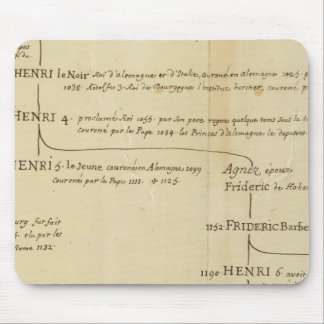 pons
i du
HENRI le Noir Roi d'alemagne et d'Italie, Couroné en Alemagne 1025.
1038. Rodolfe 3. Roi de Bourgogne l'institue heretier, couroné p
HENRI 4. proclamé Roi 1055. par son pere regne quelque tems sous la t
couroné par le Pape 1084. les Princes d'alemagne le deposent
HENRI 5. le Jeune couroné en Alemagne 1099
couroné par le Pape 1111. † 1125.
Agnéz, épouse
Frideric de Hohe
ourg fut fait
s. elu par les
Rome 1132.
1152. FRIDERIC Barbe
1190. HENRI 6. avoir